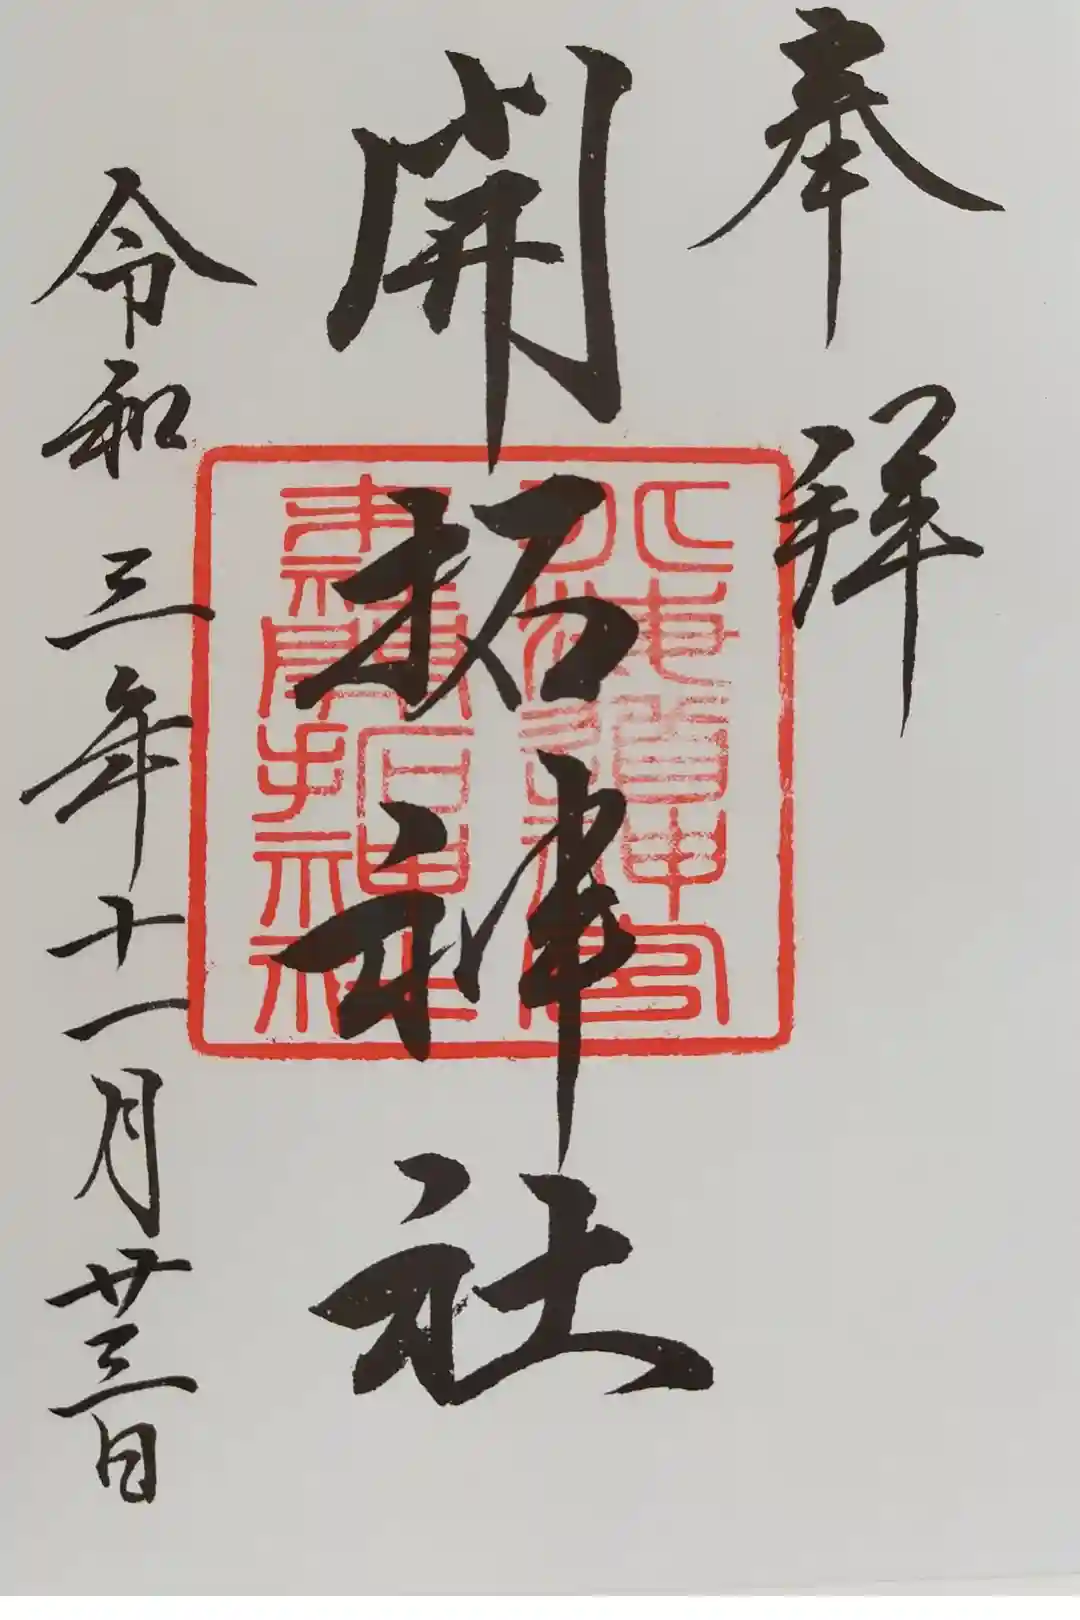 奉拝
開拓神社
北海道神宮
末社開拓神社
令和三年十一月廿三日